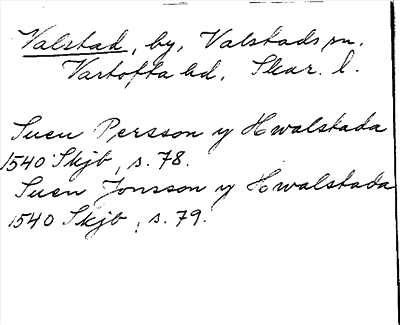 Valstad, by, Valstads sn.
Vartofta hd, Skar. l.
Suen Persson y Hwalstada
1540 Skjb, s. 78.
Suen Jonsson y Hwalstada
1540 Skjb, s. 79.